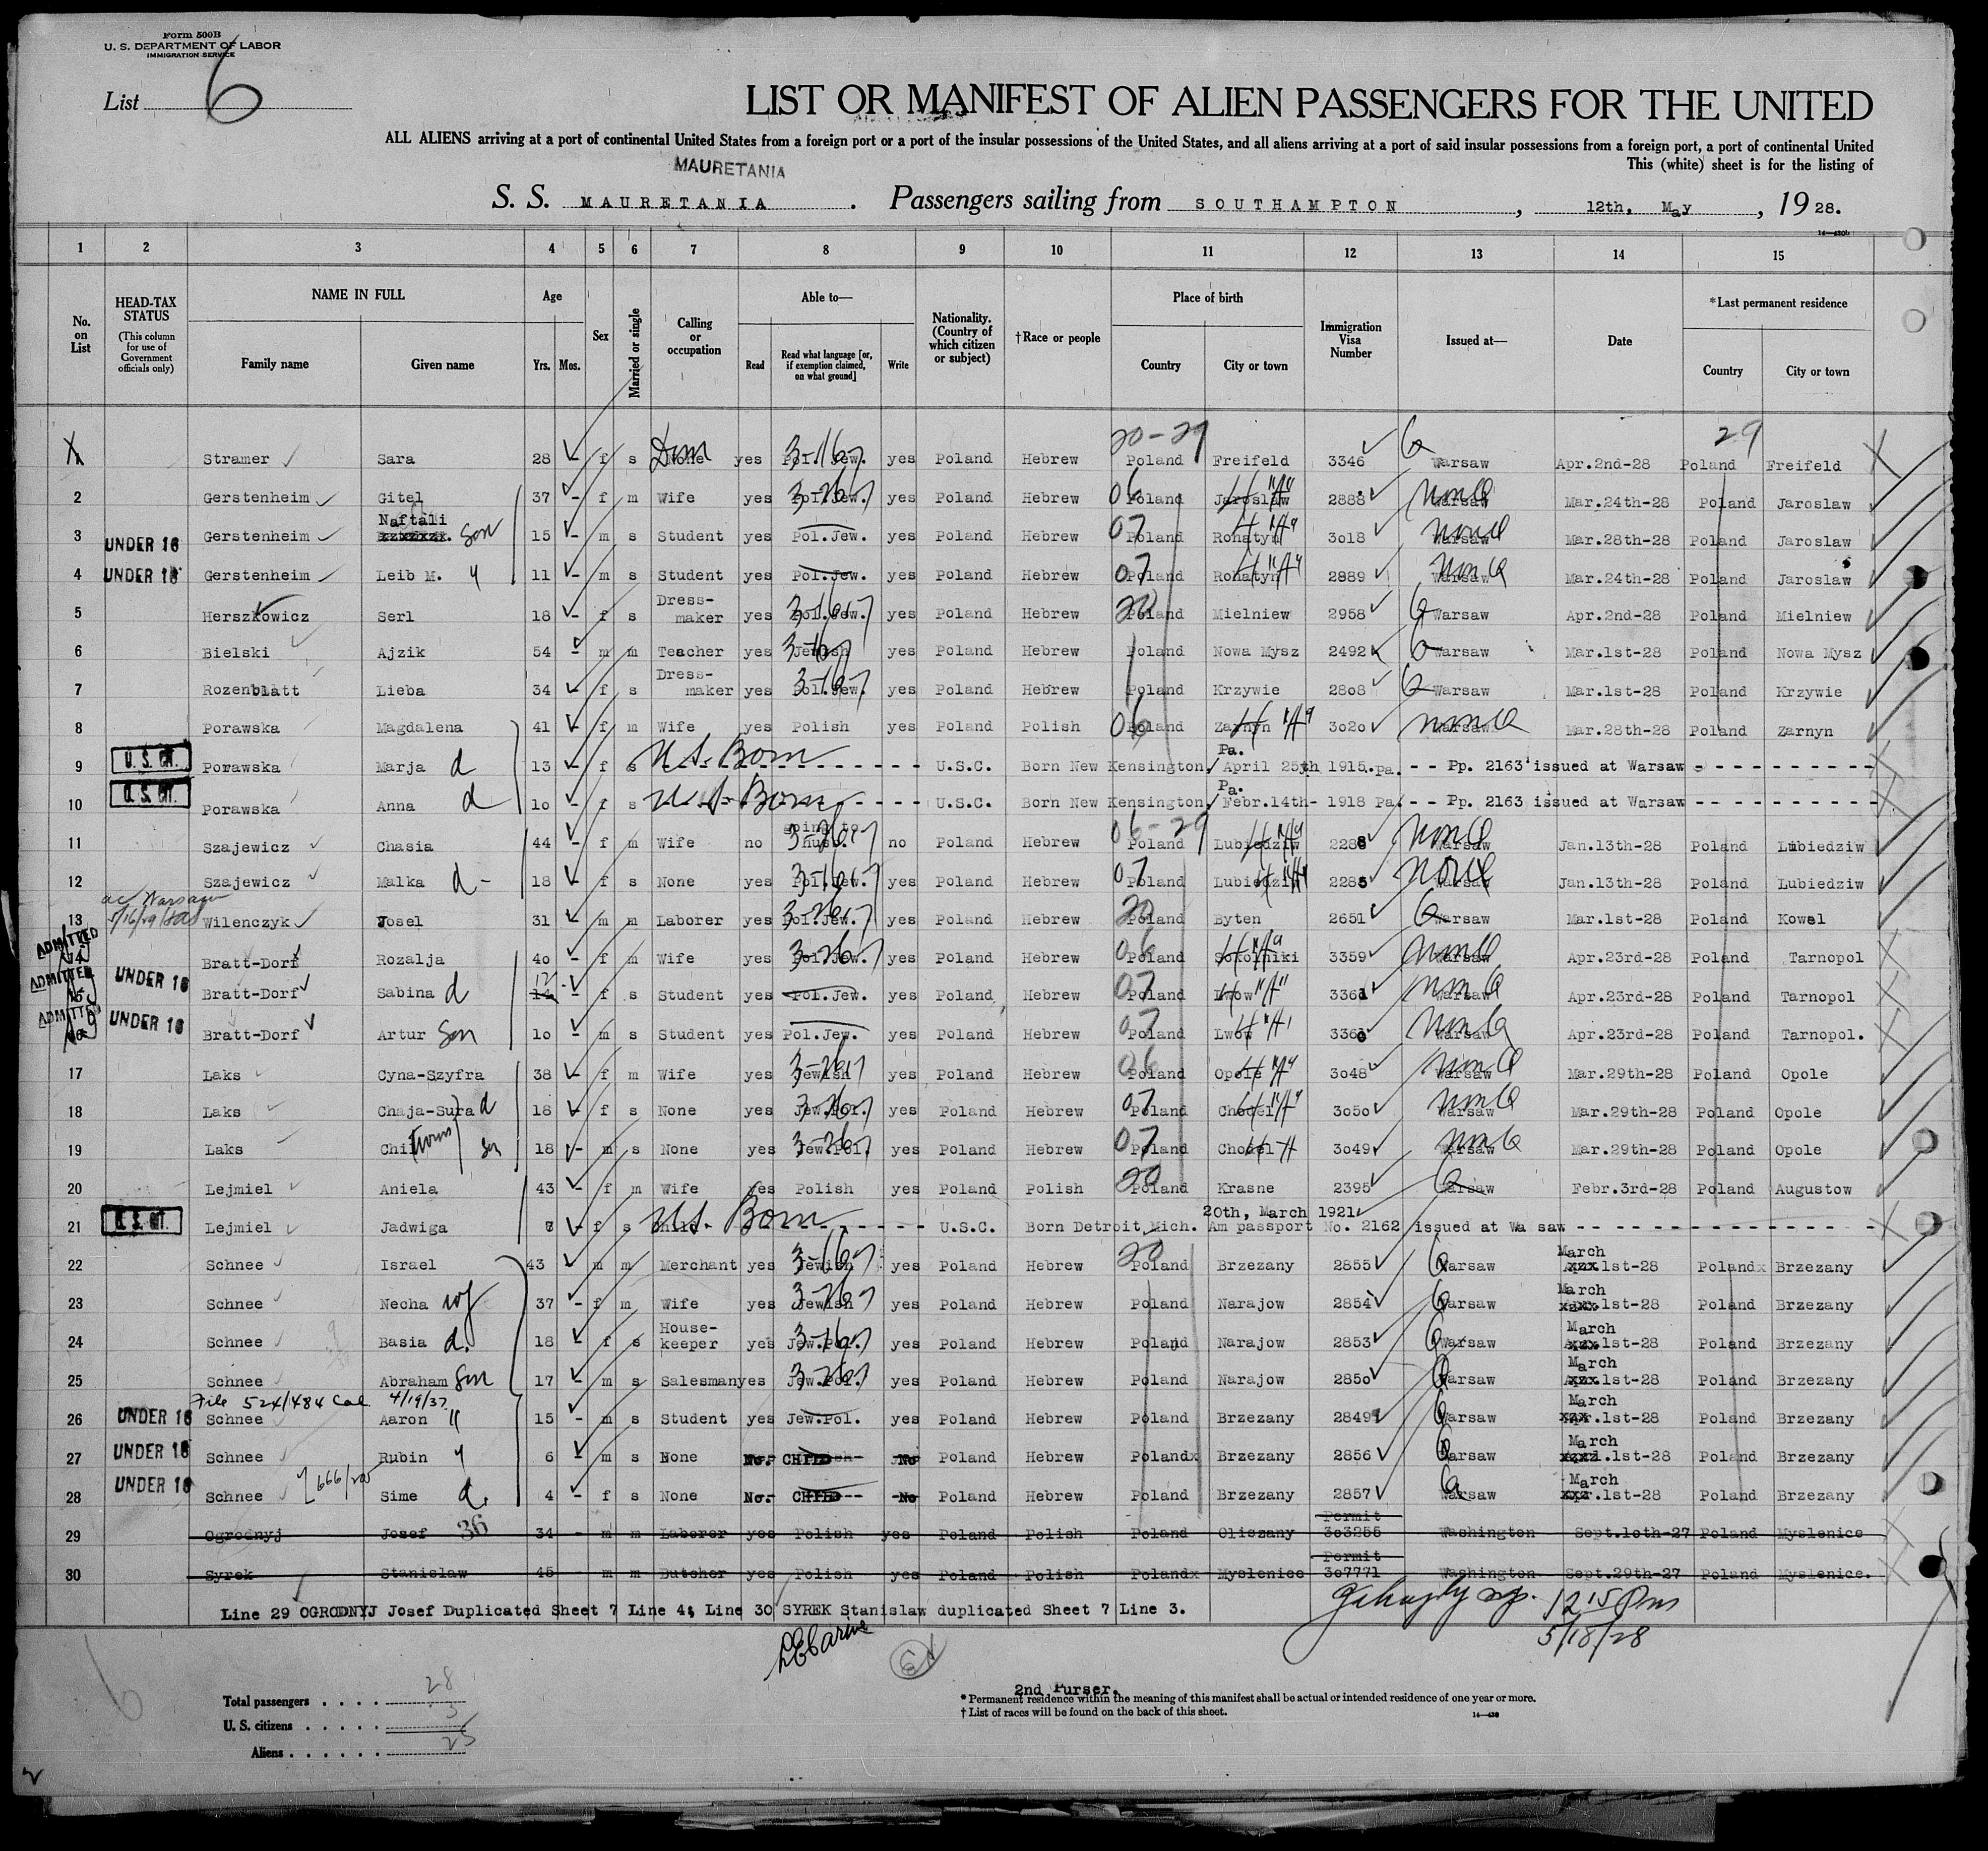 Form 500B
U. S. DEPARTMENT OF LABOR
IMMIGRATION SERVICE
List 6
LIST OR MANIFEST OF ALIEN PASSENGERS FOR THE UNITED
ALL ALIENS arriving at a port of continental United States from a foreign port or a port of the insular possessions of the United States, and all aliens arriving at a port of said insular possessions from a foreign port, a port of continental United
This (white) sheet is for the listing of
MAURETANIA
S. S. MAURETANIA. Passengers sailing from SOUTHAMPTON, 12th, May, 1928.
1 2 3 4 5 6 7 8 9 10 11 12 13 14 15
No. on List
HEAD-TAX STATUS
(This column for use of Government officials only)
NAME IN FULL
Family name Given name
Age
Yrs. Mos.
Sex
Married or single
Calling or occupation
Able to—
Read
Read what language [or, if exemption claimed, on what ground]
Write
Nationality. (Country of which citizen or subject)
†Race or people
Place of birth
Country City or town
Immigration Visa Number
Issued at—
Date
*Last permanent residence
Country City or town
20-29 29
Stramer Sara 28 - f s None Dom yes Pol. Jew. yes Poland Hebrew Poland Freifeld 3346 Warsaw Apr.2nd-28 Poland Freifeld
2 Gerstenheim Gitel 37 - f m Wife yes Pol.Jew. yes Poland Hebrew 06 Poland Jaroslaw 2888 Warsaw Mar.24th-28 Poland Jaroslaw
3 UNDER 16 Gerstenheim Naftali Son 15 - m s Student yes Pol.Jew. yes Poland Hebrew 07 Poland Rohatyn 3018 Warsaw Mar.28th-28 Poland Jaroslaw
4 UNDER 16 Gerstenheim Leib M. 11 - m s Student yes Pol.Jew. yes Poland Hebrew 07 Poland Rohatyn 2889 Warsaw Mar.24th-28 Poland Jaroslaw
5 Herszkowicz Serl 18 - f s Dress-maker yes Pol.Jew. yes Poland Hebrew 20 Poland Mielniew 2958 Warsaw Apr.2nd-28 Poland Mielniew
6 Bielski Ajzik 54 - m m Teacher yes Jewish yes Poland Hebrew Poland Nowa Mysz 2492 Warsaw Mar.1st-28 Poland Nowa Mysz
7 Rozenblatt Lieba 34 - f s Dress-maker yes Pol.Jew. yes Poland Hebrew Poland Krzywie 2808 Warsaw Mar.1st-28 Poland Krzywie
8 Porawska Magdalena 41 - f m Wife yes Polish yes Poland Polish 06 Poland Zarnyn 3020 Warsaw Mar.28th-28 Poland Zarnyn
9 U. S. CIT. Porawska Marja d 13 - f s U.S. Born U.S.C. Born New Kensington, Pa. April 25th 1915. Pa. -- Pp. 2163 issued at Warsaw
10 U. S. CIT. Porawska Anna d 10 - f s U.S. Born U.S.C. Born New Kensington, Pa. Febr.14th- 1918 Pa. -- Pp. 2163 issued at Warsaw
11 Szajewicz Chasia 44 - f m Wife no going to husb. no Poland Hebrew 06-29 Poland Lubiedziw 2286 Warsaw Jan.13th-28 Poland Lubiedziw
12 Szajewicz Malka d- 18 - f s None yes Pol.Jew. yes Poland Hebrew 07 Poland Lubiedziw 2285 Warsaw Jan.13th-28 Poland Lubiedziw
13 Wilenczyk Josel 31 - m m Laborer yes Pol.Jew. yes Poland Hebrew 20 Poland Byten 2651 Warsaw Mar.1st-28 Poland Kowel
ADMITTED Bratt-Dorf Rozalja 40 - f m Wife yes Pol.Jew. yes Poland Hebrew 06 Poland Sokolniki 3359 Warsaw Apr.23rd-28 Poland Tarnopol
ADMITTED UNDER 16 Bratt-Dorf Sabina d 12 - f s Student yes Pol.Jew. yes Poland Hebrew 07 Poland Lwow 3361 Warsaw Apr.23rd-28 Poland Tarnopol
ADMITTED UNDER 16 Bratt-Dorf Artur Son 10 - m s Student yes Pol.Jew. yes Poland Hebrew 07 Poland Lwow 3360 Warsaw Apr.23rd-28 Poland Tarnopol.
17 Laks Cyna-Szyfra 38 - f m Wife yes Jewish yes Poland Hebrew 06 Poland Opole 3048 Warsaw Mar.29th-28 Poland Opole
18 Laks Chaja-Sura d 18 - f s None yes Jew.Pol. yes Poland Hebrew 07 Poland Chodel 3050 Warsaw Mar.29th-28 Poland Opole
19 Laks Chil twins 18 - m s None yes Jew.Pol. yes Poland Hebrew 07 Poland Chodel 3049 Warsaw Mar.29th-28 Poland Opole
20 Lejmiel Aniela 43 - f m Wife yes Polish yes Poland Polish 20 Poland Krasne 2395 Warsaw Febr.3rd-28 Poland Augustow
21 U. S. CIT. Lejmiel Jadwiga 7 - f s Child- U.S. Born U.S.C. Born Detroit, Mich. 20th, March 1921 Am passport No. 2162 issued at Wa saw
22 Schnee Israel 43 m m Merchant yes Jewish yes Poland Hebrew 20 Poland Brzezany 2855 Warsaw March 1st-28 Poland Brzezany
23 Schnee Necha wf 37 - f m Wife yes Jewish yes Poland Hebrew Poland Narajow 2854 Warsaw March 1st-28 Poland Brzezany
24 Schnee Basia d. 18 - f s House-keeper yes Jew.Pol. yes Poland Hebrew Poland Narajow 2853 Warsaw March 1st-28 Poland Brzezany
25 Schnee Abraham Son 17 - m s Salesman yes Jew.Pol. yes Poland Hebrew Poland Narajow 2850 Warsaw March 1st-28 Poland Brzezany
File 524/484 Cal 4/19/37
26 UNDER 16 Schnee Aaron " 15 - m s Student yes Jew.Pol. yes Poland Hebrew Poland Brzezany 2849 Warsaw March 1st-28 Poland Brzezany
27 UNDER 16 Schnee Rubin 6 - m s None No. CHILD No Poland Hebrew Poland Brzezany 2856 Warsaw March 1st-28 Poland Brzezany
28 UNDER 16 Schnee Sime d. 4 - f s None No. CHILD No Poland Hebrew Poland Brzezany 2857 Warsaw March 1st-28 Poland Brzezany
29 Ogrodnyj Josef 36 34 - m m Laborer yes Polish yes Poland Polish Poland Oliszany Permit 303255 Washington Sept.10th-27 Poland Myslenice
30 Syrek Stanislaw 45 - m m Butcher yes Polish yes Poland Polish Poland Myslenice Permit 307771 Washington Sept.29th-27 Poland Myslenice.
Line 29 OGRODNYJ Josef Duplicated Sheet 7 Line 4; Line 30 SYREK Stanislaw duplicated Sheet 7 Line 3.
12 15 Pm
5/18/28
Total passengers . . . . 28
U. S. citizens . . . . . 3
Aliens . . . . . . 25
2nd Purser.
* Permanent residence within the meaning of this manifest shall be actual or intended residence of one year or more.
† List of races will be found on the back of this sheet.